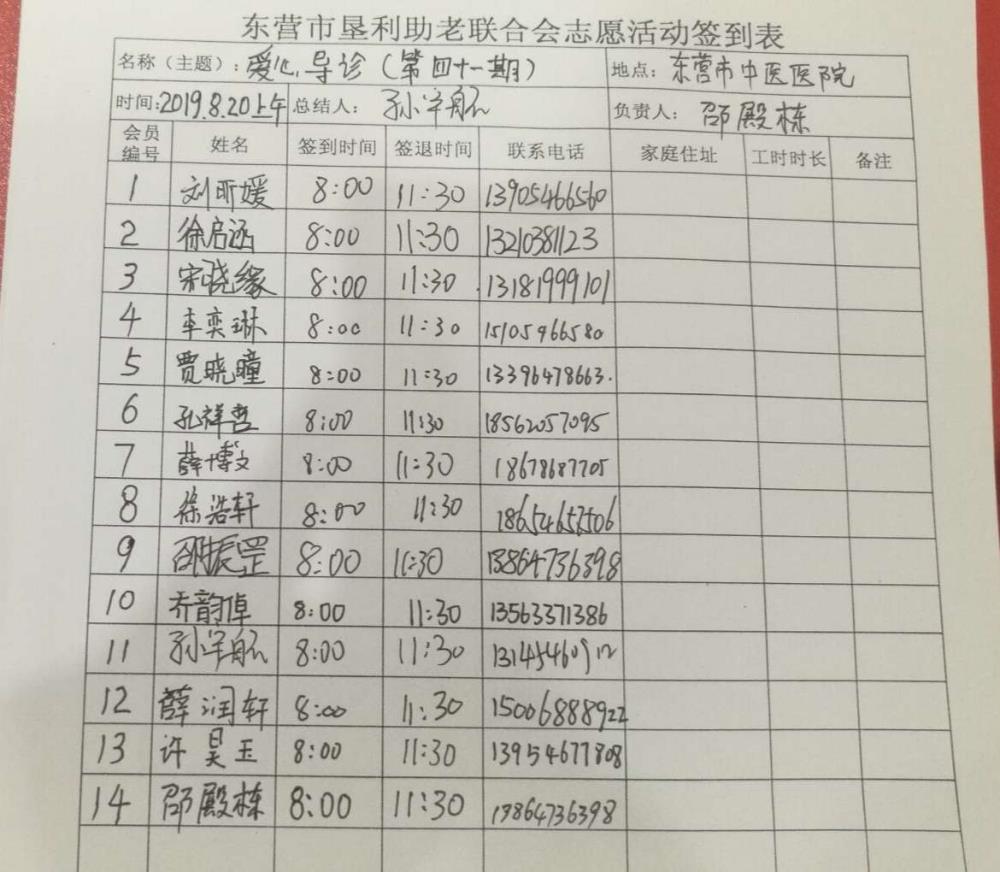 东营市垦利助老联合会志愿活动签到表
名称（主题）：爱心导诊（第四十一期） 地点：东营市中医医院
时间:2019.8.20上午 总结人： 孙宇航 负责人： 邵殿栋
会员编号 姓名 签到时间 签退时间 联系电话 家庭住址 工时时长 备注
1 刘昕媛 8:00 11:30 13905466560
2 徐启涵 8:00 11:30 13210381123
3 宋晓缘 8:00 11:30 13181999101
4 车奕琳 8:00 11:30 15105466580
5 贾晓曈 8:00 11:30 13396478663.
6 孔祥哲 8:00 11:30 18562057095
7 薛博文 8:00 11:30 18678687705
8 徐浩轩 8:00 11:30
9 邵振罡 8:00 11:30 13864736398
10 乔韵倬 8:00 11:30 13563371386
11 孙宇航 8:00 11:30
12 薛润轩 8:00 11:30 15006888922
13 许昊玉 8:00 11:30 13954677808
14 邵殿栋 8:00 11:30 13864736398